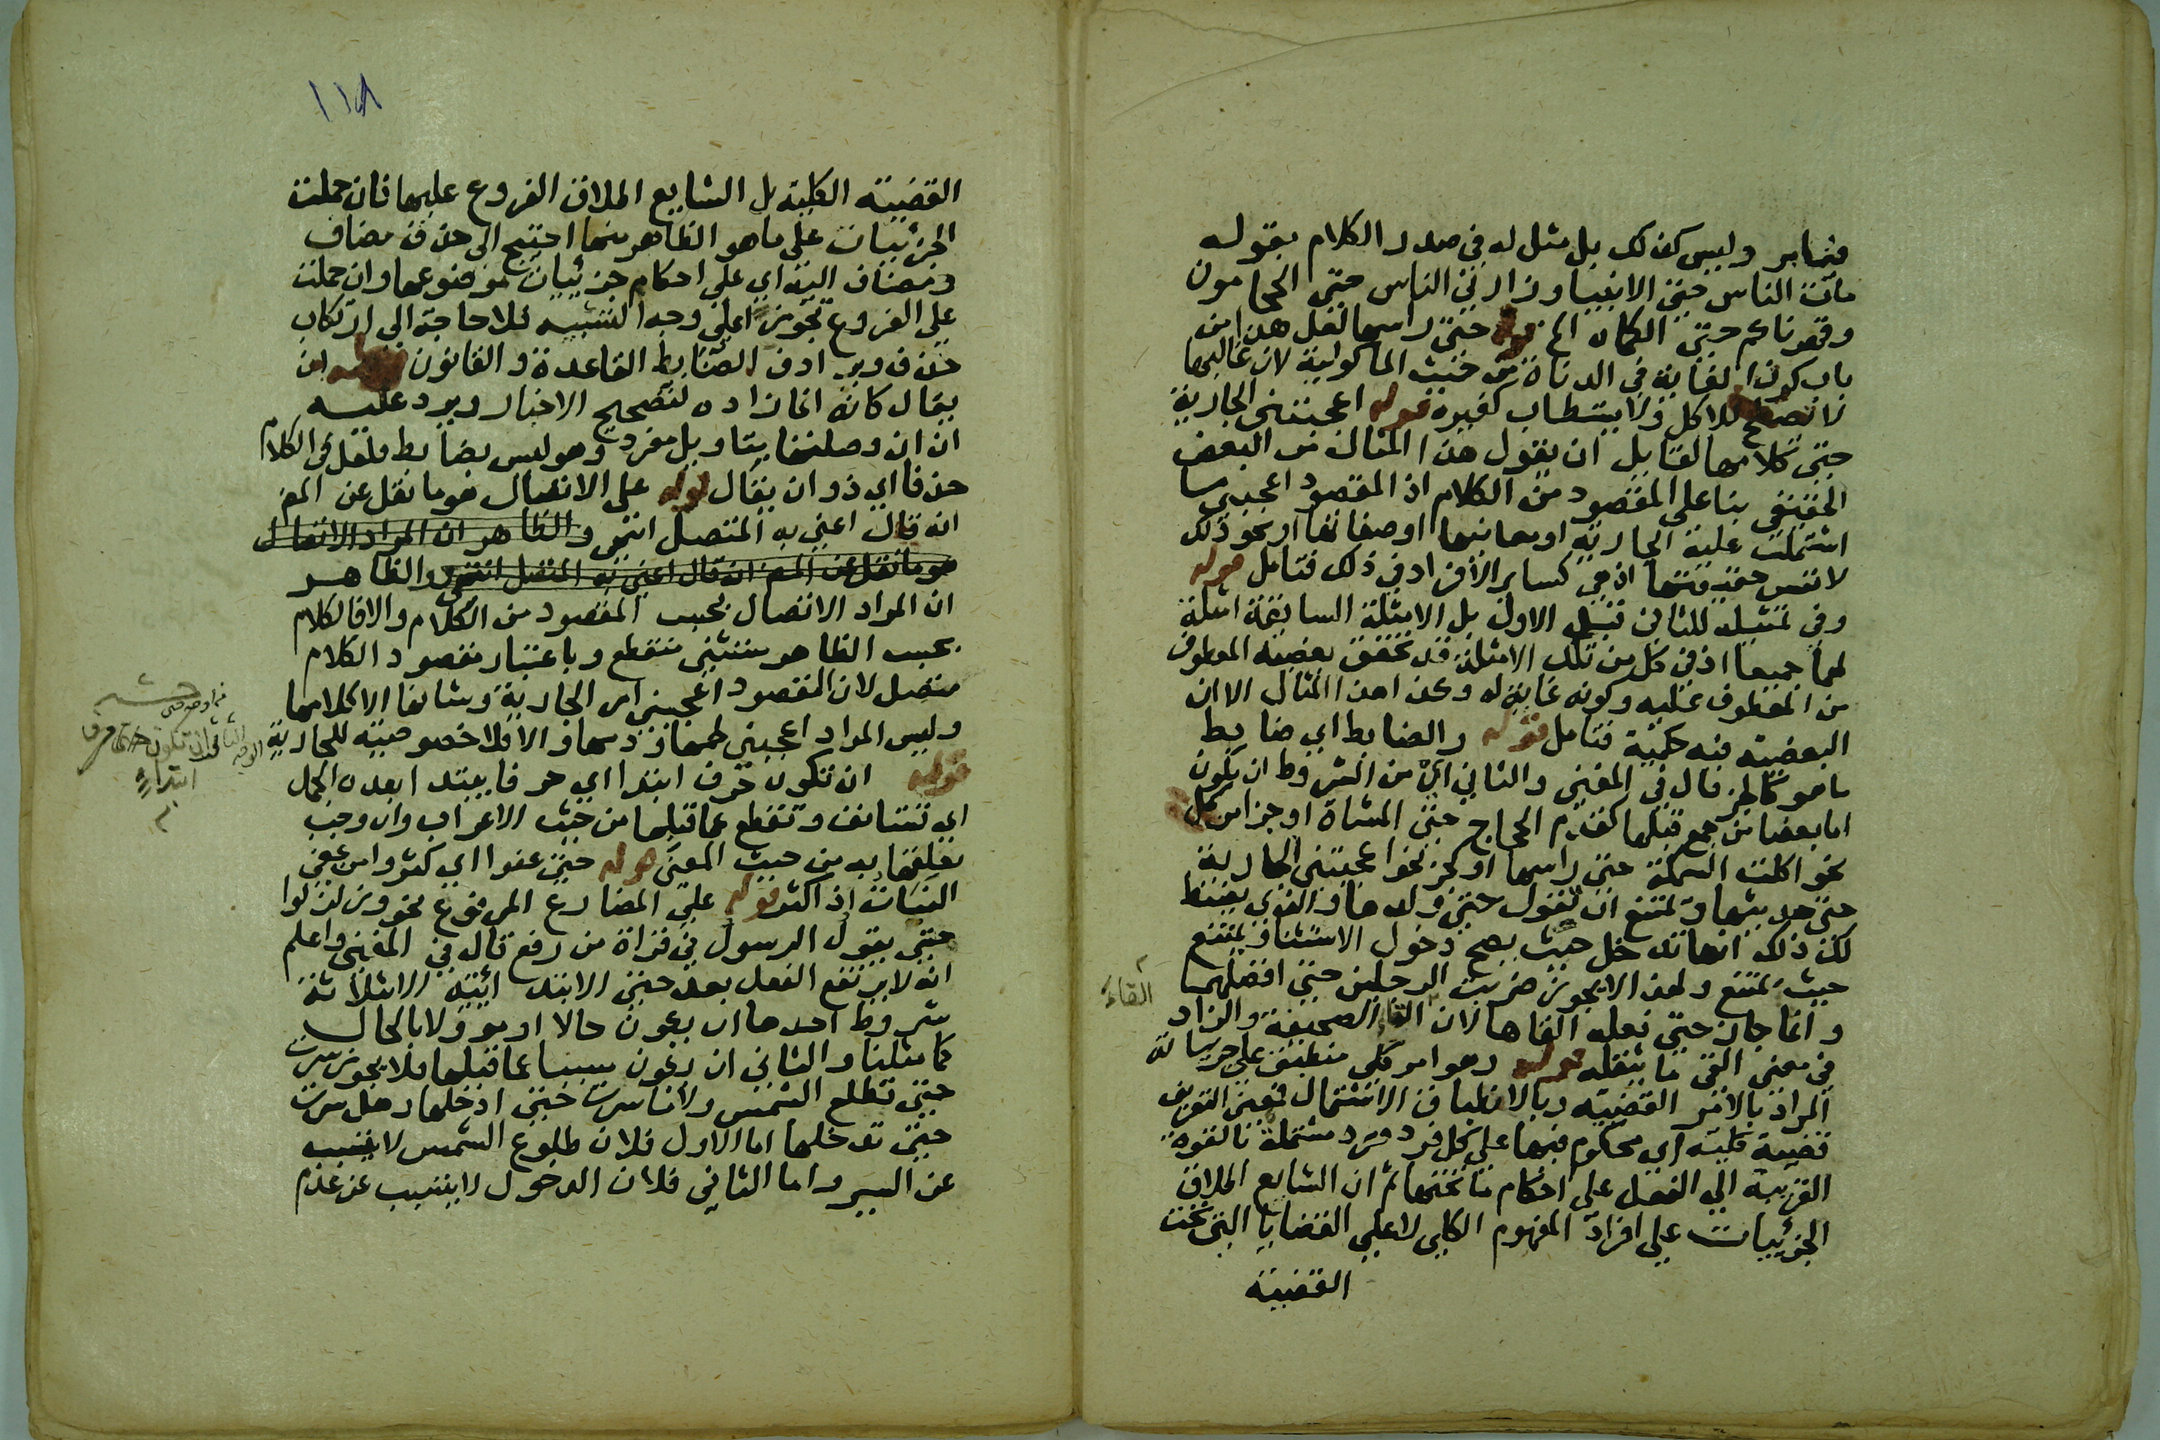 فتدابر وليس كذلك بل مثل له في صدر الكلام بقوله
مات الناس حتى الانبيا وزارني الناس حتى الحجامون
وقهرناكم حتى الكماه الخ قوله حتى راسها لعل هذا من
باب كون الغاية في الدناة من حيث الماكولية لان غالبها
لا تصلح للاكل ولا يستطاب كغيره قوله اعجبتني الجارية
حتى كلامها لقايل ان يقول هذا المثال من البعض
الحقيقي بنا على المقصود من الكلام اذ المقصود اعجبني ما
اشتملت عليه الجارية او معانيها او صفاتها او نحو ذلك
لا نفس حقيقتها اذ هي كساير الافراد في ذلك فتامل قوله
وفي تمثيله للثاني قبل الاول بل الامثلة السابقة امثلة
لهما جميعا اذ في كل من تلك الامثلة قد تحقق بعضية المعطوف
من المعطوف عليه وكونه غاية له وكذا هذا المثال الا ان
البعضية فيه حكمية فتامل قوله والضابط اي ضابط
ما هو كالجزء قال في المغني والثاني اي من الشروط ان يكون
اما بعضا من جمع قبلها كقدم الحجاج حتى المشاة او جزا من كل
نحو اكلت السمكة حتى راسها او كجزء نحو اعجبتني الجارية
حتى حديثها ويمتنع ان تقول حتى ولدها والذي يضبط
لك ذلك انها تدخل حيث يصح دخول الاستثنا ويمتنع
حيث يمتنع ولهذا لا يجوز ضربت الرجلين حتى افضلهما
وانما جاز حتى نعله القاها لان القاء الصحيفة والزاد
القاء
في معنى القى ما يثقله قوله وهو امر كلي منطبق على جزئياته
المراد بالامر القضية وبالانطباق الاشتمال فمعنى التعريف
قضية كلية اي محكوم فيها على كل فرد فرد مشتملة بالقوة
القريبة الى الفعل على احكام ما تحتها ثم ان الشايع اطلاق
الجزئيات على افراد المفهوم الكلي لا على القضايا التي تحت
القضية
١١٨
القضية الكلية بل الشايع اطلاق الفروع عليها فان حملت
الجزئيات على ما هو الظاهر منها احتيج الى حذف مضاف
ومضاف اليه اي على احكام جزئيات موضوعها وان حملت
على الفروع تجوزا على وجه التشبيه فلا حاجة الى ارتكاب
حذف ويرادف الضابط القاعدة والقانون قوله ان
يقال كانه انما زاده لتصحيح الاخبار ويرد عليه
ان ان وصلتها بتاويل مفرد وهو ليس بضابط فلعل في الكلام
حذفا اي ذو ان يقال قوله على الاتصال هو ما نقل عن المص
انه قال اعني به المتصل انتهى والظاهر ان المراد الاتصال
هو ما نقل عن المص انه قال اعني به المتصل انتهى والظاهر
ان المراد الاتصال بحسب المقصود من الكلام والا فالكلام
بحسب الظاهر مستثنى منقطع وباعتبار مقصود الكلام
متصل لان المقصود اعجبني امر الجارية وشانها الا كلامها
وليس المراد اعجبني لحمها ودمها والا فلا خصوصية للجارية
قوله ان تكون حرف ابتدا اي حرفا يبتدا بعده الجمل
الثاني ان تكون حرفا
ابتداء
اي تستانف وتقطع عما قبلها من حيث الاعراب وان وجب
تعلقها به من حيث المعنى قوله حتى عفوا اي كثروا من عفى
النبات اذا كثر قوله على المضارع المرفوع نحو وزلزلوا
حتى يقول الرسول في قراة من رفع قال في المغني واعلم
انه لا يرتفع الفعل بعد حتى الابتدائية الا بثلاثة
شروط احدها ان يكون حالا او موولا بالحال
كما مثلنا والثاني ان يكون مسببا عما قبلها فلا يجوز سرت
حتى تطلع الشمس ولا ما سرت حتى ادخلها وهل سرت
حتى تدخلها اما الاول فلان طلوع الشمس لا يتسبب
عن السير واما الثاني فلان الدخول لا يتسبب عن عدم